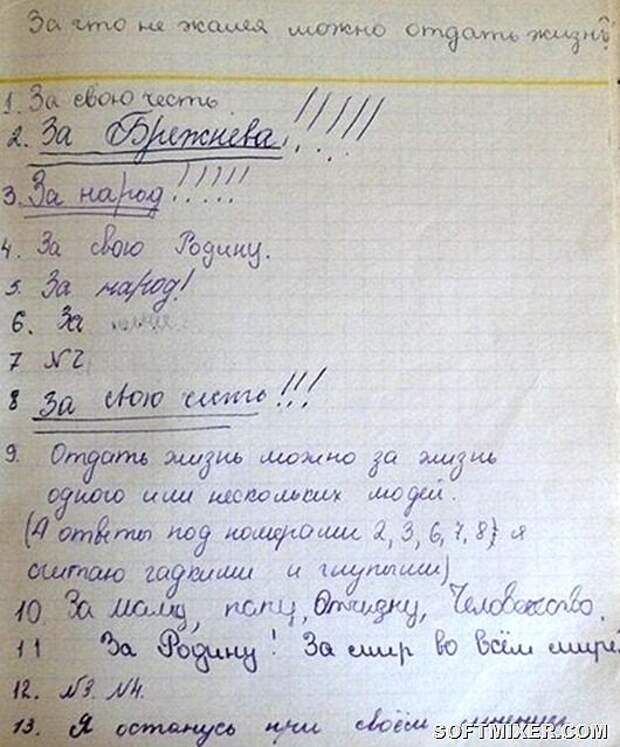 За что не жалея можно отдать жизнь?
1. За свою честь
2. За Брежнева!!!!!
3. За народ!!!!!
4. За свою Родину.
5. За народ!
6. За
7 №2
8 За свою честь!!!
9. Отдать жизнь можно за жизнь
одного или нескольких людей.
(А ответы под номерами 2, 3, 6, 7, 8} я
считаю гадкими и глупыми)
10 За маму, папу, Отчизну, Человечество.
11 За Родину! За мир во всём мире!
12. №3. №4.
13. Я останусь при своём мнении
SOFTMIXER.COM